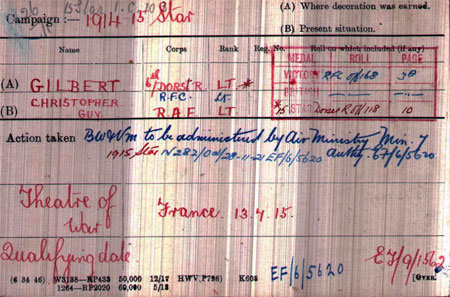 Campaign :— 1914-15 Star
(A) Where decoration was earned.
(B) Present situation.
Name Corps Rank Reg. No. Roll on which included (if any)
MEDAL ROLL PAGE
VICTORY RFC O/168 38
BRITISH
(A) GILBERT 6th DORST. R. LT *
(B) CHRISTOPHER GUY R.F.C. Lt
R.A.F LT
* 15 STAR Dorset R O/1/18 10
Action taken BW&Vm to be administered by Air Ministry Min. 7
1915 Star N282/Od/28-11-21 EF/6/5620 authy. EF/6/5620
Theatre of War France. 13.4.15.
Qualifying date
EF/9/1562
EF/6/5620
(6 34 46) W3138—RP433 50,000 12/17 HWV(P798) K608 [Over.
1264—RP2020 60,000 5/18